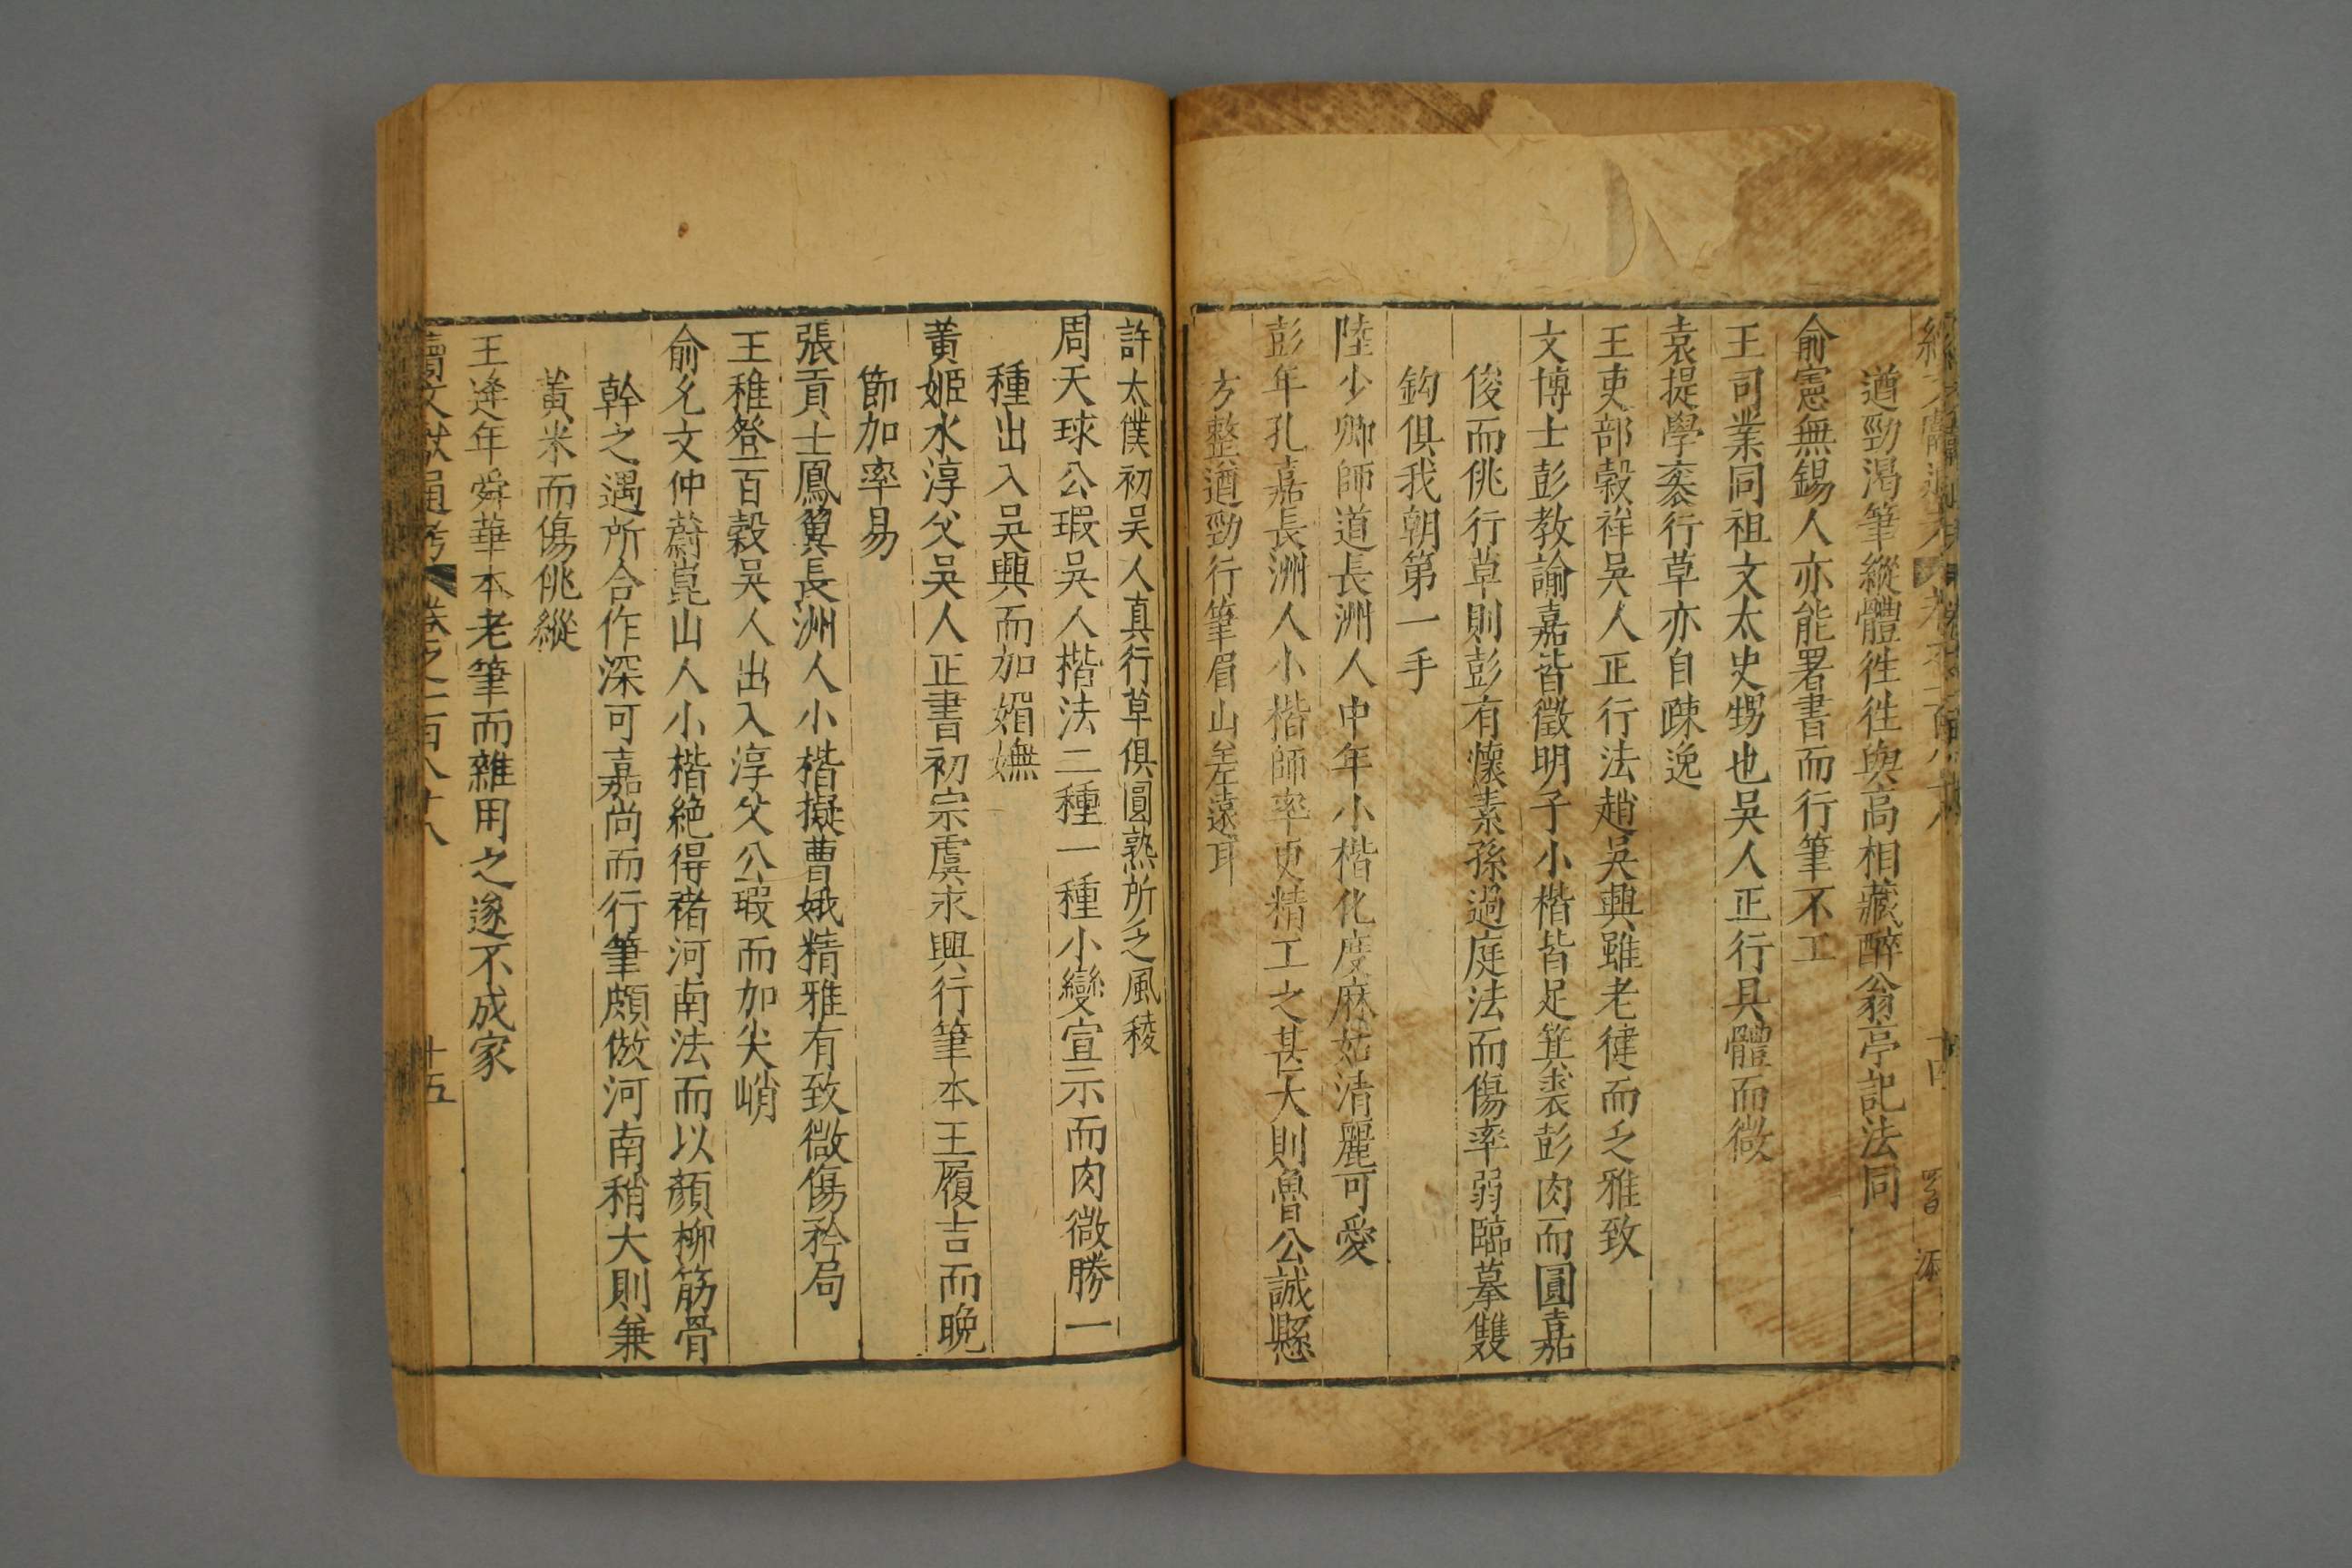 續文獻通考 卷之一百八十八 十四
遒勁渴筆縱體徃徃與高相藏醉翁亭記法同
俞憲無錫人亦能署書而行筆不工
王司業同祖文太史甥也吳人正行具體而微
袁提學袠行草亦自疎逸
王吏部穀祥吳人正行法趙吳興雖老健而乏雅致
文博士彭教諭嘉皆徵明子小楷皆足箕裘彭肉而圓嘉
俊而佻行草則彭有懷素孫過庭法而傷率弱臨摹雙
鈎俱我朝第一手
陸少卿師道長洲人中年小楷化度麻姑清麗可愛
彭年孔嘉長洲人小楷師率更精工之甚大則魯公誠懸
方整遒勁行筆眉山差遠耳
許太僕初吳人真行草俱圓熟所乏風稜
周天球公瑕吳人楷法二種一種小變宣示而肉微勝一
種出入吳興而加媚嫵
黃姬水淳父吳人正書初宗虞永興行筆本王履吉而晚
節加率易
張貢士鳳翼長洲人小楷擬曹娥精雅有致微傷矜局
王稚登百穀吳人出入淳父公瑕而加尖峭
俞允文仲蔚崑山人小楷絶得褚河南法而以顏柳筋骨
幹之遇所合作深可嘉尚而行筆頗倣河南稍大則兼
黃米而傷佻縱
王逢年舜華本老筆而雜用之遂不成家
續文獻通考 卷之一百八十八 十五